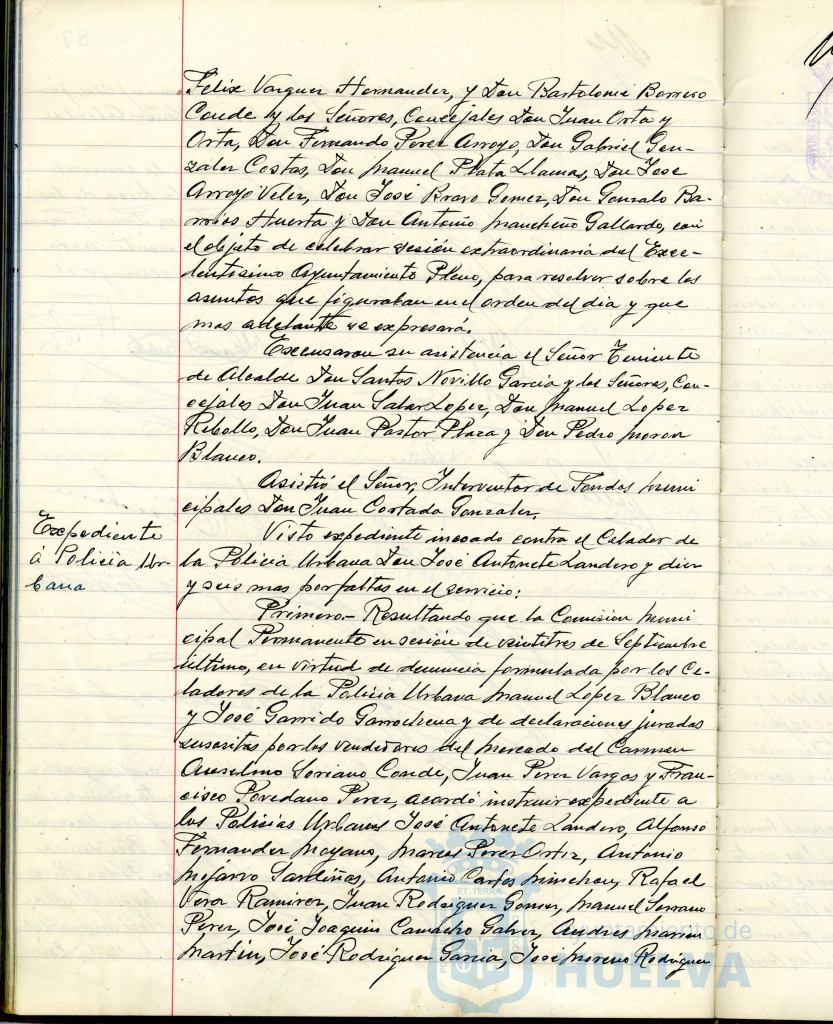 Félix Vazquez Hernandez, y Don Bartolomé Borrero
Conde y los Señores, Concejales Don Juan Orta y
Orta, Don Fernando Perez Arroyo, Don Gabriel Gon-
zalez Costas, Don Manuel Plata Llamas, Don José
Arroyo Velez, Don José Bravo Gomez, Don Gonzalo Ba-
rrios Huerta y Don Antonio Mancheño Gallardo, con
el objeto de celebrar sesión extraordinaria del Exce-
lentisimo Ayuntamiento Pleno, para resolver sobre los
asuntos que figuraban en el orden del dia y que
mas adelante se expresará.
Excusaron su asistencia el Señor Teniente
de Alcalde Don Santos Novillo Garcia y los Señores, Con-
cejales Don Juan Salas Lopez, Don Manuel Lopez
Rebollo, Don Juan Pastor Plaza y Don Pedro Moron
Blanco.
Asistió el Señor, Interventor de Fondos Muni
cipales Don Juan Cortada Gonzalez.
Expediente
á Policia Ur-
bana
Visto expediente incoado contra el Celador de
la Policia Urbana Don José Antonete Landero y diez
y seis mas por faltas en el servicio:
Primero.- Resultando que la Comisión Muni
cipal Permanente en sesión de veintitres de Septiembre
último, en virtud de denuncia formulada por los Ce-
ladores de la Policia Urbana Manuel Lopez Blanco
y José Garrido Garrochena y de declaraciones juradas
suscritas por los vendedores del Mercado del Carmen
Anselmo Soriano Conde, Juan Perez Vargas y Fran-
cisco Povedano Perez, acordó instruir expediente a
los Policias Urbanos José Antonete Landero, Alfonso
Fernandez Moyano, Marcos Perez Ortiz, Antonio
Mojarro Sardiñas, Antonio Carlos Rafael
Vera Ramirez, Juan Rodriguez Gomez, Manuel Serrano
Perez, José Joaquin Camacho Galvez, Andres
Martin, José Rodriguez Garcia, José Moreno Rodriguez
Ayuntamiento de
HUELVA